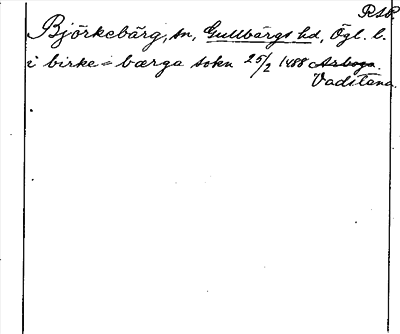 RAP.
Björkebärg, sn, Gullbärgs hd, Ögl. l.
i birke = bærga sokn 25/2 1488 Arboga.
Vadstena.